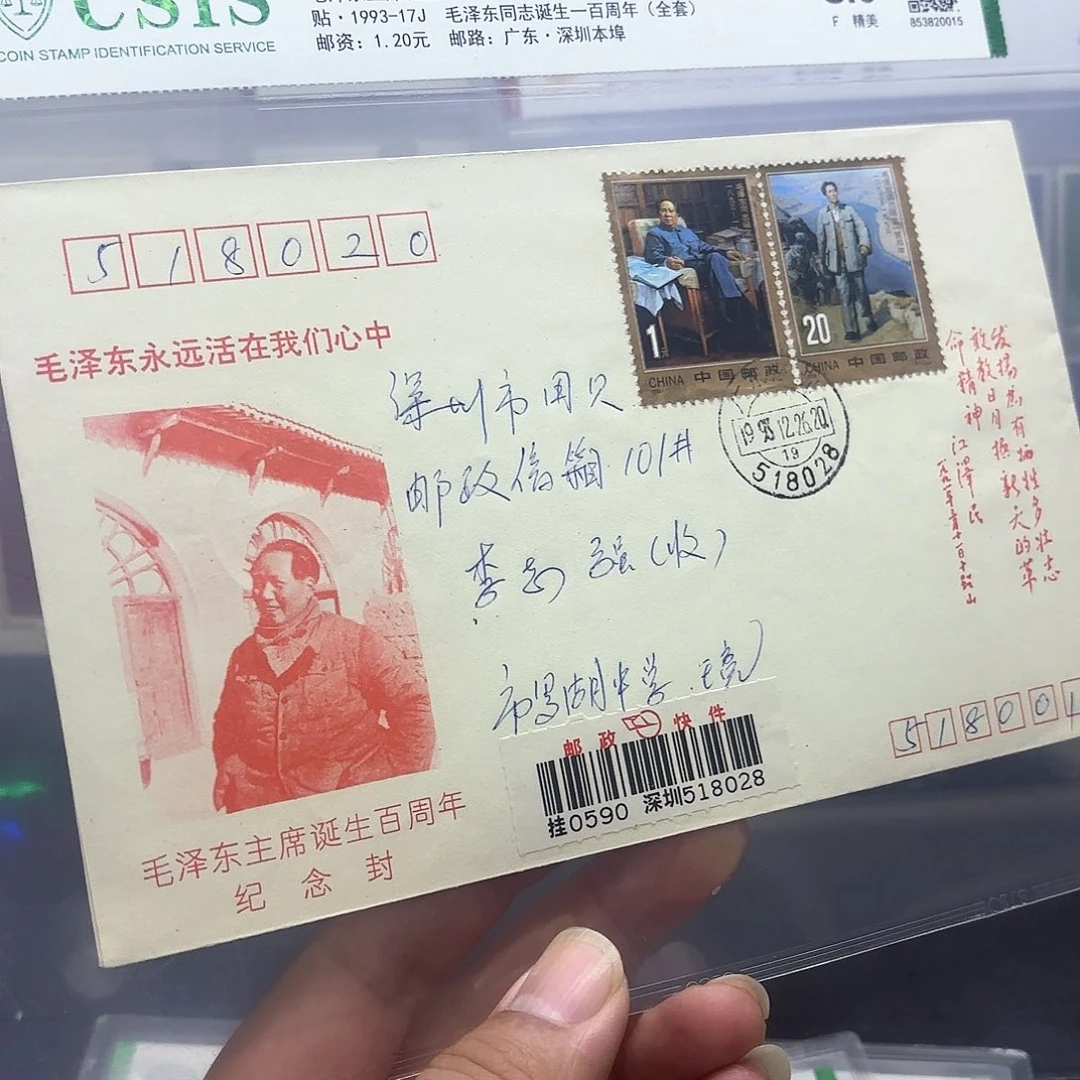 CSIS
COIN STAMP IDENTIFICATION SERVICE
贴·1993-17J 毛泽东同志诞生一百周年（全套）
邮资：1.20元 邮路：广东·深圳本埠
F 精美
853820015
518020
毛泽东永远活在我们心中
1
CHINA 中国邮政
20
CHINA 中国邮政
深圳市田贝
邮政信箱101#
李 强（收）
19 93.12.26.20
19
518028
发扬为有牺牲多壮志
敢教日月换新天的革
命精神 江泽民
市 湖中学 王亮
邮政快件
挂0590 深圳518028
51800
毛泽东主席诞生百周年
纪念封